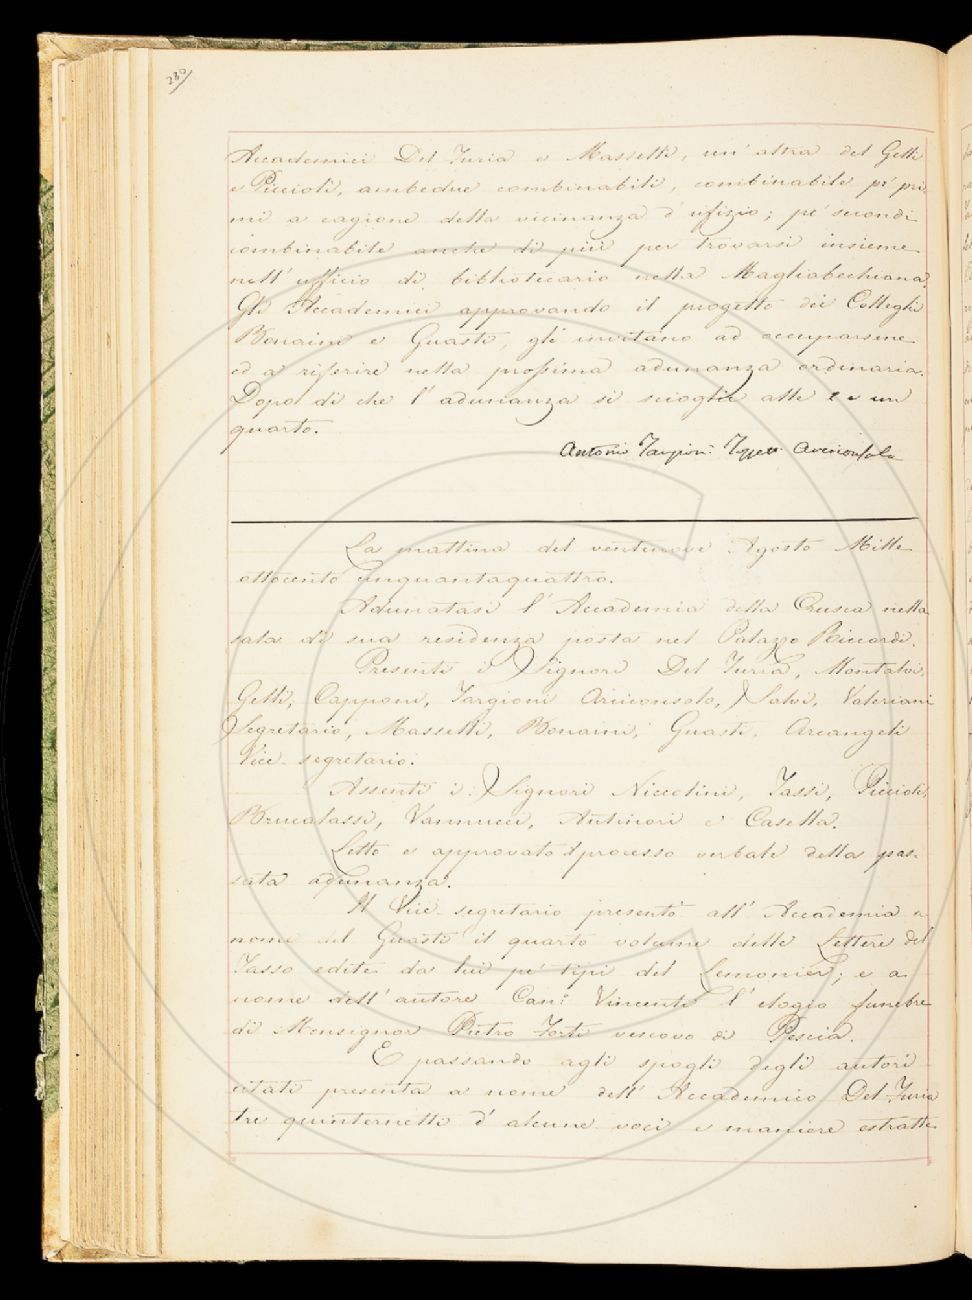 280/
Accademici Del Furia e Masselli, un' altra del Gelli
e Piccioli, ambedue combinabili, combinabile pe' pri
mi a cagione della vicinanza d' ufizio; pe' secondi
combinabile anche di più per trovarsi insieme
nell' ufficio di bibliotecario nella Magliabechiana.
Gli Accademici approvando il progetto dei Colleghi
Bonaini e Guasti, gli invitano ad occuparsene
ed a riferire nella prossima adunanza ordinaria.
Dopo di che l' adunanza si scioglie alle 2 e un
quarto.
Antonio Targioni Tozzetti Arciconsolo
La mattina del ventinove Agosto Mille
ottocento cinquantaquattro.
Adunatasi l' Accademia della Crusca nella
sala di sua residenza posta nel Palazzo Riccardi.
Presenti i Signori Del Furia, Montalvi,
Gelli, Capponi, Targioni Arciconsolo, Salvi, Valeriani
Segretario, Masselli, Bonaini, Guasti, Arcangeli
Vice-segretario.
Assenti i Signori Niccolini, Tassi, Piccioli,
Brucalassi, Vannucci, Antinori e Casella.
Letto e approvato il processo verbale della pas-
sata adunanza.
Il Vice-segretario presentò all' Accademia a
nome del Guasti il quarto volume delle Lettere del
Tasso edite da lui pe' tipi del Lemonier; e a
nome dell' autore Can: Vincenti l' elogio funebre
di Monsignor Pietro Forti vescovo di Pescia.
E passando agli spogli degli autori
citati presenta a nome dell' Accademico Del Furia
tre quinternetti d' alcune voci e maniere estratte